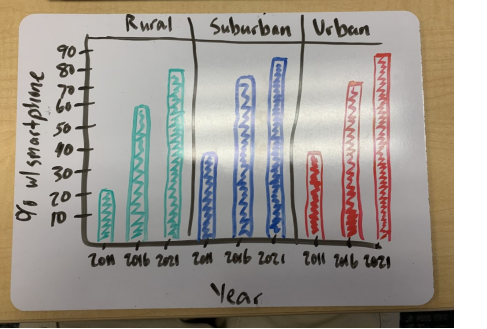 Rural Suburban Urban
% w/ smartphone
90
80
70
60
50
40
30
20
10
2011 2016 2021 2011 2016 2021 2011 2016 2021
Year